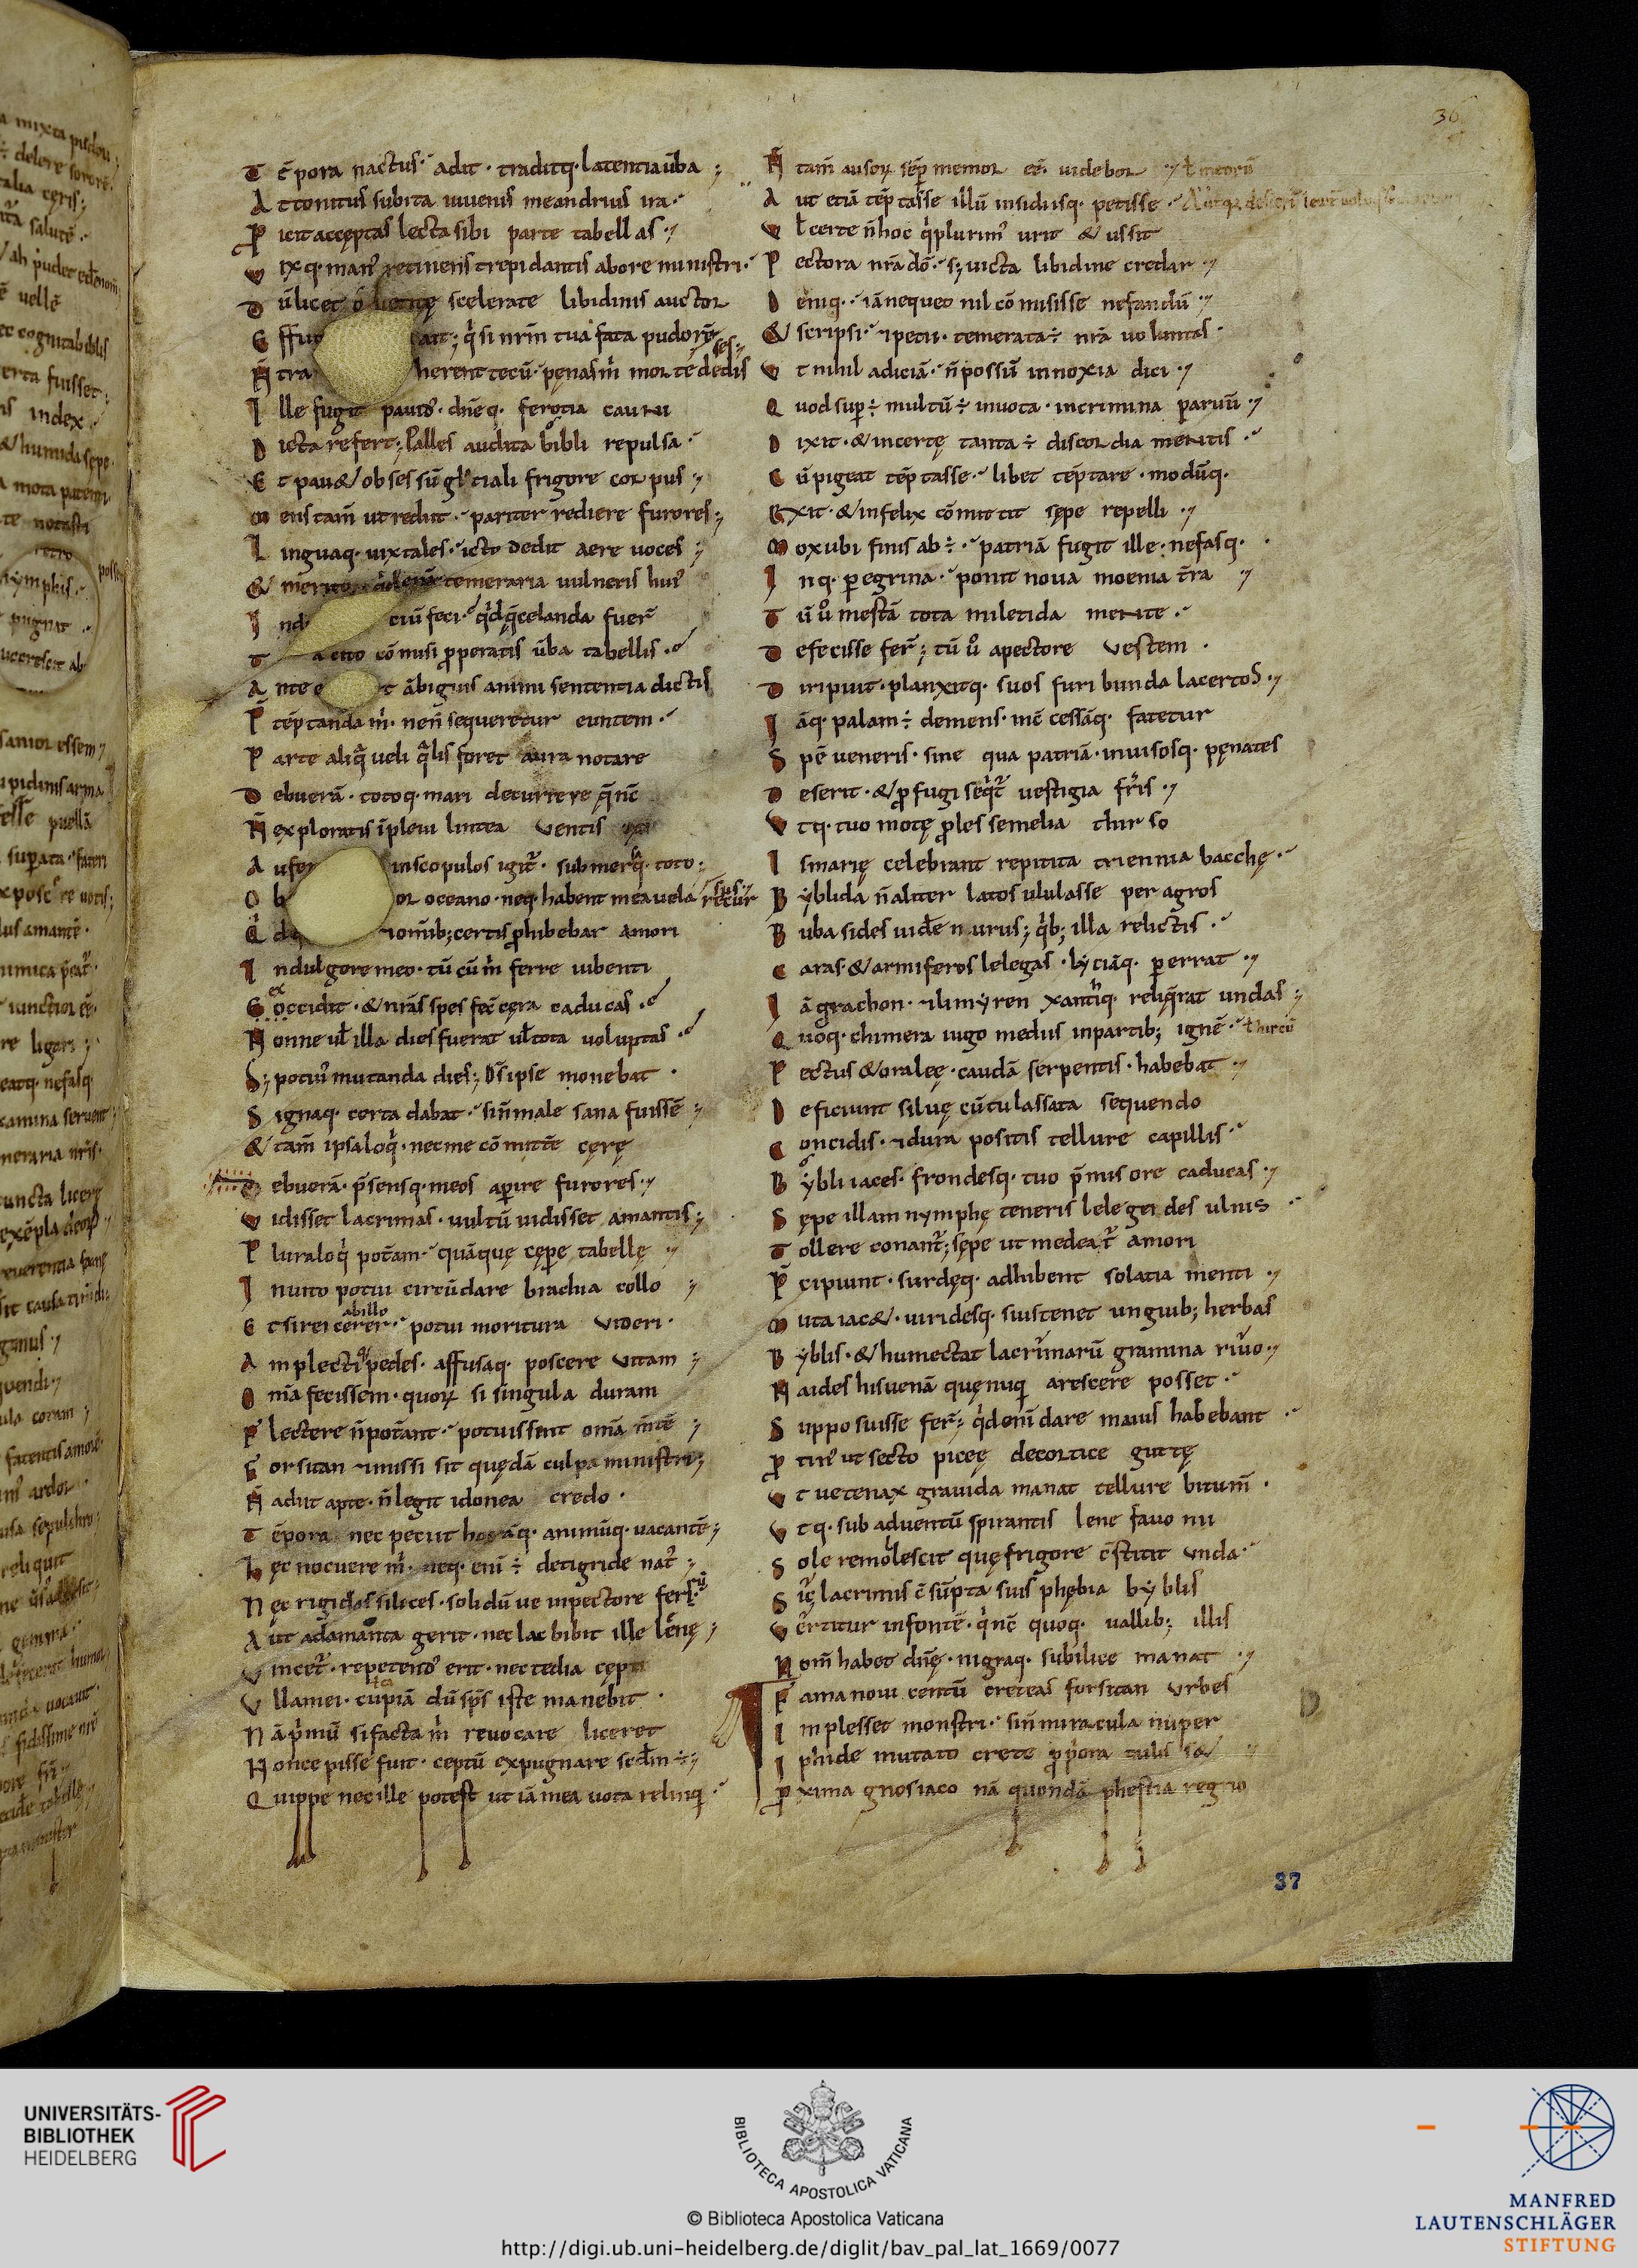 36
T ēpora nactus· adit· traditq; latentia ūba ;
A ttonitus subita iuuenis meandrius ira·
P icit acceptas lecta sibi parte tabellas·
V ixq· man' retinens trepidantis ab ore ministri·
D ū licet o scelerate libidinis auctor
E ffu ait; q̇ si nrm̄ tua fata pudorē
N̄ tra herent tecū· pęnas m̊ morte dedisses·
I lle fugit pauid'· dn̄eq· ferotia cauni
D icta refert; Palles audita bibli repulsa·
E t pau& obsessū glaciali frigore corpus
M ens tam̄ ut rediit· pariter rediere furores;
L inguaq· uix tales· icto dedit aere uoces ;
& merito temeraria uulneris hui'
I nd ciū feci· q̇d q̄ celanda fuer̄
T a cito cōmisi properatis ūba tabellis·
A nte e t ābiguis animi sententia dictis
P̄ tēptanda m̊· ne n̄ sequeretur euntem·
P arte aliq̄ ueli q̄lis foret aura notare
D ebuerā· totoq· mari decurrere q̄ nc̄
N̄ exploratis īpleui lintea ventis
A ufer in scopulos igit̄· submersaq· toto·
O b or oceano· neq· habent mea uela recursus·
Q̇ d ominib; certis prohibebar amori
I ndulgere meo· tū cū m̊ ferre iubenti
E xcidit· & nr̄as spes fec̄ cęra caducas·
N onne ul̄ illa dies fuerat ul̄ tota voluptas
S; poti' mutanda dies; D's ipse monebat ·
S ignaq· certa dabat· si n̄ male sana fuissē ;
& tam̄ ipsa loq̇· nec me cōmitte cęrę
D ebuerā· p̄sensq· meos aperire furores·
V idisset lacrimas· uultū uidisset amantis ;
P lura loq̇ poteram· quā quę cępere tabellę
I nuito potui circūdare brachia collo ;
abillo
E t si reicerer· potui moritura videri·
A mplectiq· pedes· affusaq· poscere vitam ;
O mīa fecissem· quorꝝ si singula duram
F lectere n̄ poterant· potuissent omīa m̄tē ;
F orsitan & missi sit quędā culpa ministri;
N̄ adiit apte· n̄ legit idonea credo ·
T ēpora nec petiit horāq· animūq· uacantē;
H ęc nocuere m̊· neq· enī ÷ de tigride nat'
N ec rigidas silices· solidū ue in pectore ferrū
A ut adamanta gerit· nec lac bibit ille leenę
V incet̄· repetend' erit· nec tedia cępti
V lla mei· capiā dū sp̄s iste manebit ·
N ā p̄mū si facta m̊ reuocare liceret
N on cepisse fuit· ceptū expugnare sec̄dm ÷
Q uippe nec ille potest ut iā mea uota relinq̄
N̄ tam̄ ausorꝝ sēp memor ee· uidebor
A ut etiā tēptasse illū insidiisq· petisse·
V l̄ certe n̄ hoc q̇ plurim' urit & ussit
P ectora nr̄a dō· s; uicta libidine credar
D eniq· iā nequeo nil cōmisisse nefandū
& scripsi· & petii· temerata ÷ nr̄a voluntas·
V t nihil adiciā· n̄ possū innoxia dici
Q uod sup ÷ multū ÷ in uota· in crimina paruū
D ixit· & incertę tanta ÷ discordia mentis
C ū pigeat tēptasse· libet tēptare· modūq·
Exit· & infelix cōmittit sępe repelli
M ox ubi finis ab ÷· patriā fugit ille· nefasq·
I nq· peregrina· ponit noua moenia t̄ra
T ū ů mestā tota miletida mente·
D efecisse fer̄; tū ů a pectore vestem ·
D iripuit· planxitq· suos furibunda lacertos
I āq· palam ÷ demens· inc̄cessāq· fatetur
S pē ueneris· sine qua patriā· inuisosq· pęnates
D eserit· & profugi seq̇t̄ uestigia fr̄is
V tq· tuo motę proles semeleia thirso
I smarię celebrant repitita triennia bacchę·
B yblida n̄ aliter latos ululasse per agros
B ubasides uiden̄ nurus; q̇b; illa relictis·
C aras· & armiferos lelegas· lyciāq· pererrat
I ā gragon· & limyren xantiq· reliq̄rat undas ;
Q uoq· chimera iugo mediis in partib; ignē· l̄ hircū
P ectus & ora leę· caudā serpentis· habebat
D eficiunt siluę cū tu lassata sequendo
C oncidis· & dura positis tellure capillis·
B ybli iaces· frondesq· tuo p̄mis ore caducas
S ępe illam nymphę teneris lelegeides ulnis
T ollere conant̄; sępe ut medeat̄ amori
P̄ cipiunt· surdęq· adhibent solatia menti
M uta iac&· uiridesq· suis tenet unguib; herbas
B yblis· & humectat lacrimarū gramina riuo
N aides his uenā quę nuq̄ arescere posset·
S upposuisse fer̄; q̇d eni dare maius habebant
P rotin' ut secto piceę de cortice guttę
V t ue tenax grauida manat tellure bitum̄ ·
V tq· sub aduentū spirantis lene fauoni
S ole remollescit quę frigore c̄stitit unda·
S ic lacrimis c̄sūpta suis phębia byblis
V ertitur in fontē· q̇ nc̄ quoq· uallib; illis
N om̄ habet dn̄ę· nigraq· sub ilice manat
F ama noui centū creteas forsitan urbes
I mplesset monstri· si n̄ miracula nuper
I phide mutato crete propiora tulisset
P roxima gnosiaco nā quondā phestia regno
37
UNIVERSITÄTS-
BIBLIOTHEK
HEIDELBERG
BIBLIOTECA APOSTOLICA VATICANA
© Biblioteca Apostolica Vaticana
http://digi.ub.uni-heidelberg.de/diglit/bav_pal_lat_1669/0077
MANFRED
LAUTENSCHLÄGER
STIFTUNG